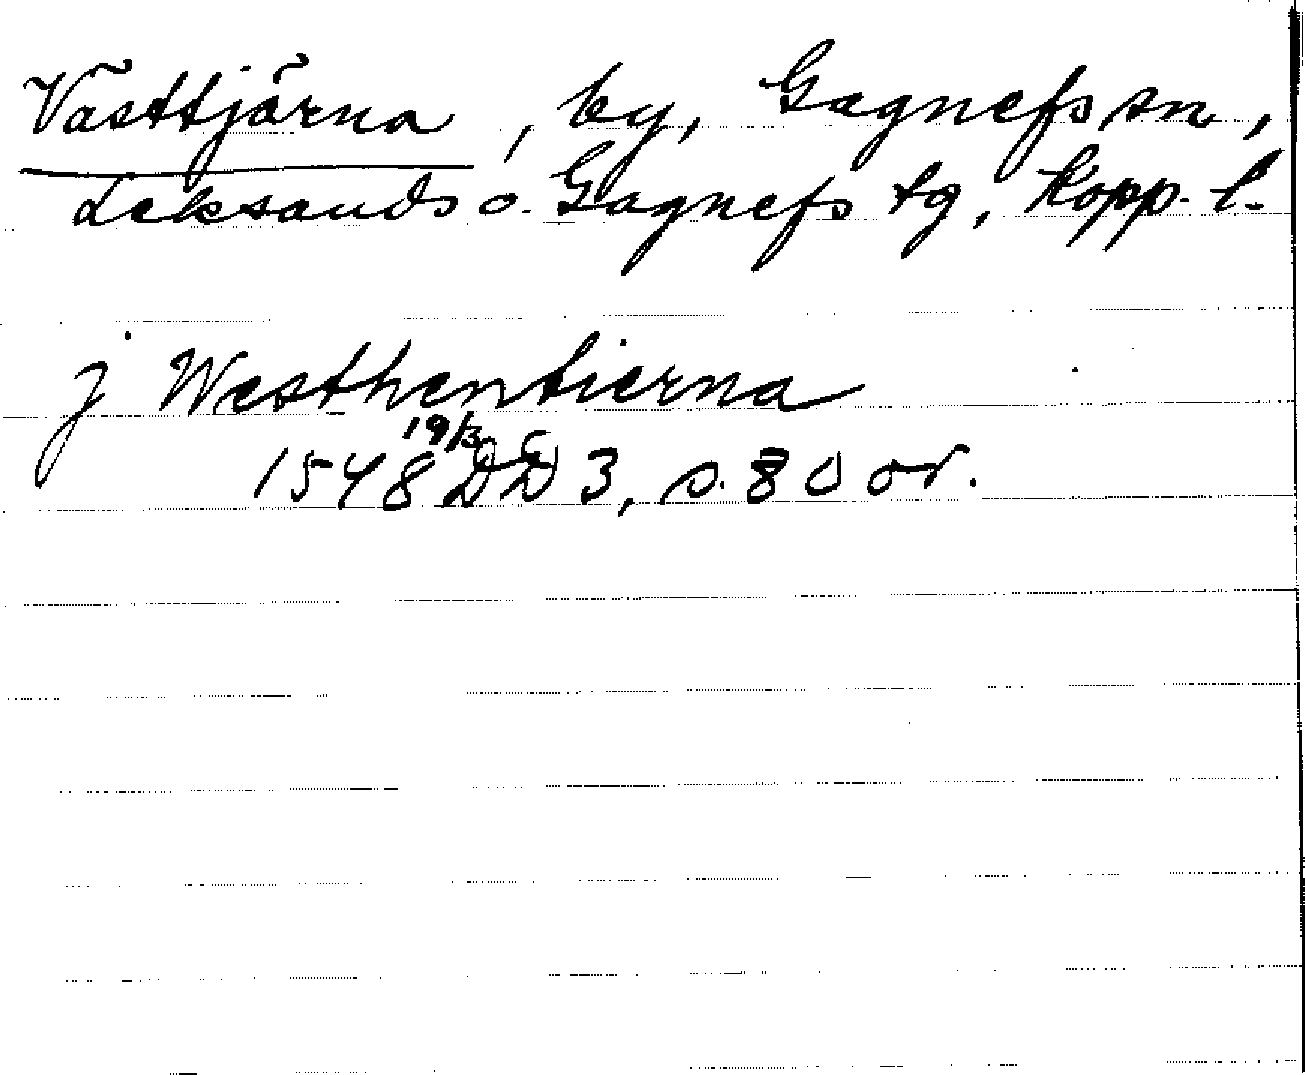 Västtjärna, by, Gagnefs sn,
Leksands o. Gagnefs tg, Kopp. l.
j Westhentierna
19/3
1548 DD 3, s. 80 or.